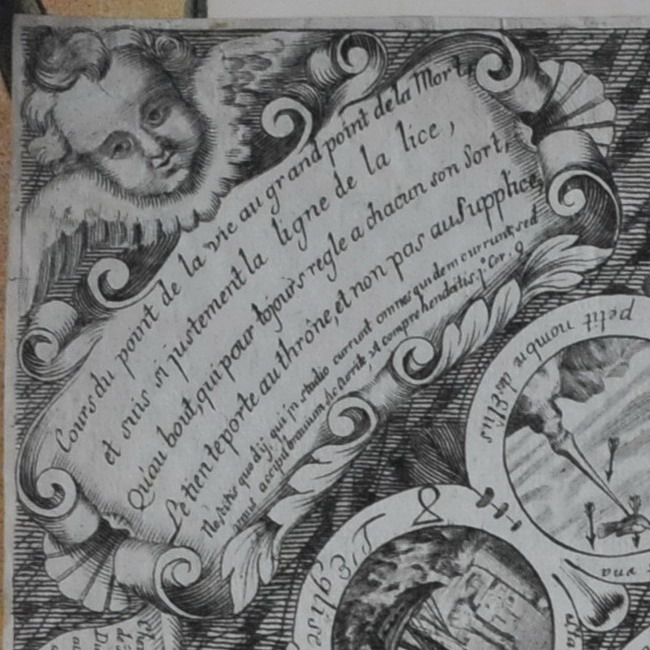 Cours du point de la vie au grand point de la Mort,
et suis si justement la ligne de la lice,
Qu'au bout, qui pour tojours regle a chacun son Sort,
Le tien te porte au thrône, et non pas au Supplice,
Nescitis quod ij, qui in stadio currunt omnes quidem currunt, sed
unus accipit bravium, sic currite, ut comprehendatis. 1.ª Cor. 9
petit nombre des Elûs
8
L'Eglise